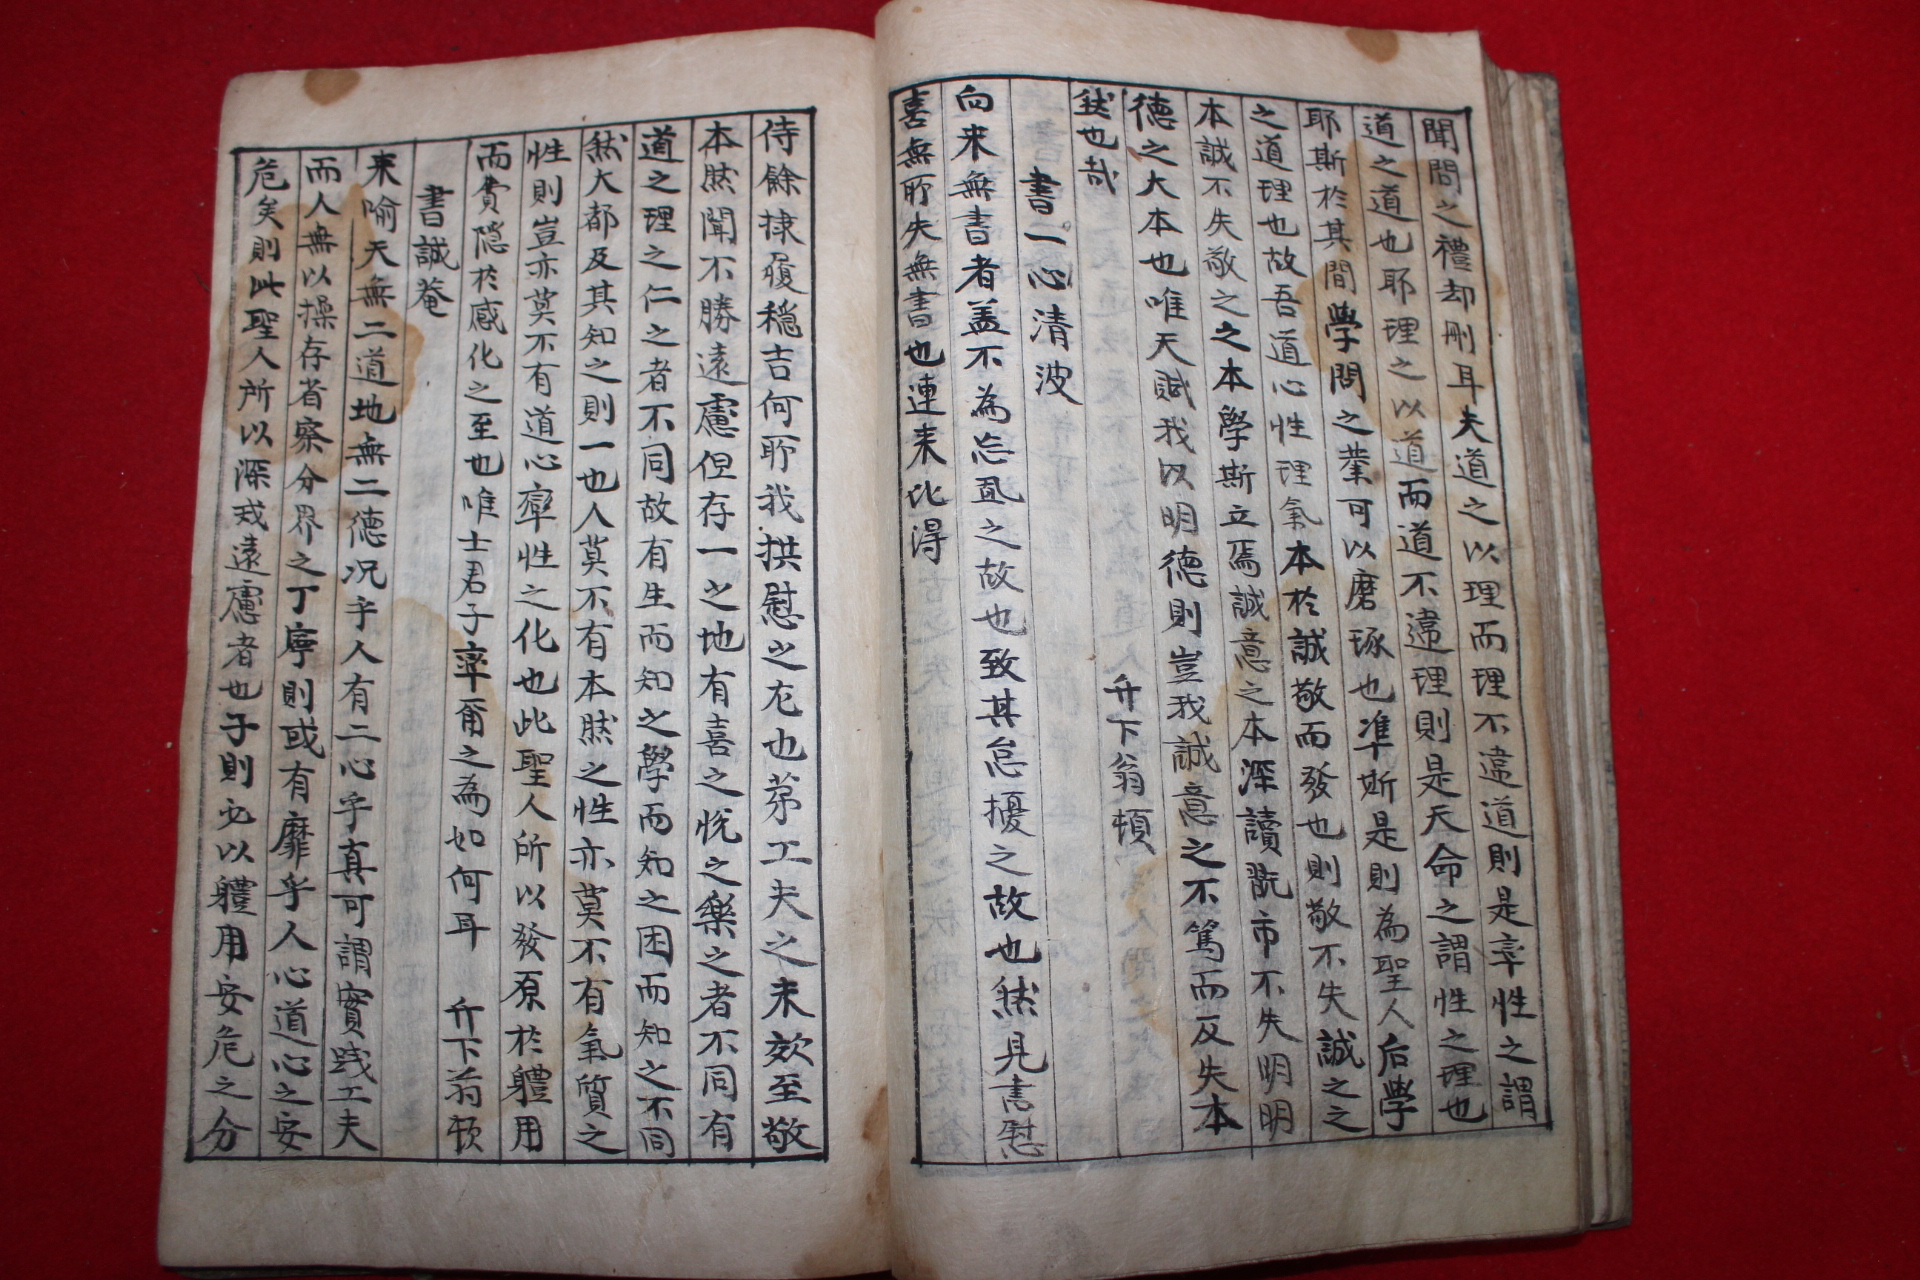 聞問之禮却刪耳夫道之以理而理不違道則是率性之謂
道之道也耶理之以道而道不違理則是天命之謂性之理也
耶斯於其間學問之業可以磨琢也準斯是則為聖人后學
之道理也故吾道心性理氣本於誠敬而發也則敬不失誠之之
本誠不失敬之之本學斯立焉誠意之本深讀既市不失明明
德之大本也唯天賦我以明德則豈我誠意之不篤而反失本
然也哉
升下翁頓
書一心清波
向来無書者盖不為忘域之故也致其怠擾之故也然見書慰
喜無耶失無書也連来比得
侍餘捸履穩吉何耶我拱慰之尤也苐工夫之未效至敬
本然聞不勝遠慮但存一之地有喜之悅之樂之者不同有
道之理之仁之者不同故有生而知之學而知之困而知之不同
然大都及其知之則一也人莫不有本然之性亦莫不有氣質之
性則豈亦莫不有道心率性之化也此聖人所以發原於軆用
而費隱於感化之至也唯士君子率爾之為如何耳 升下翁頓
書誠菴
来喻天無二道地無二德况乎人有二心乎真可謂實践工夫
而人無以操存省察分界之丁寧則或有靡乎人心道心之安
危矣則此聖人所以深戒遠慮者也子則必以軆用安危之分